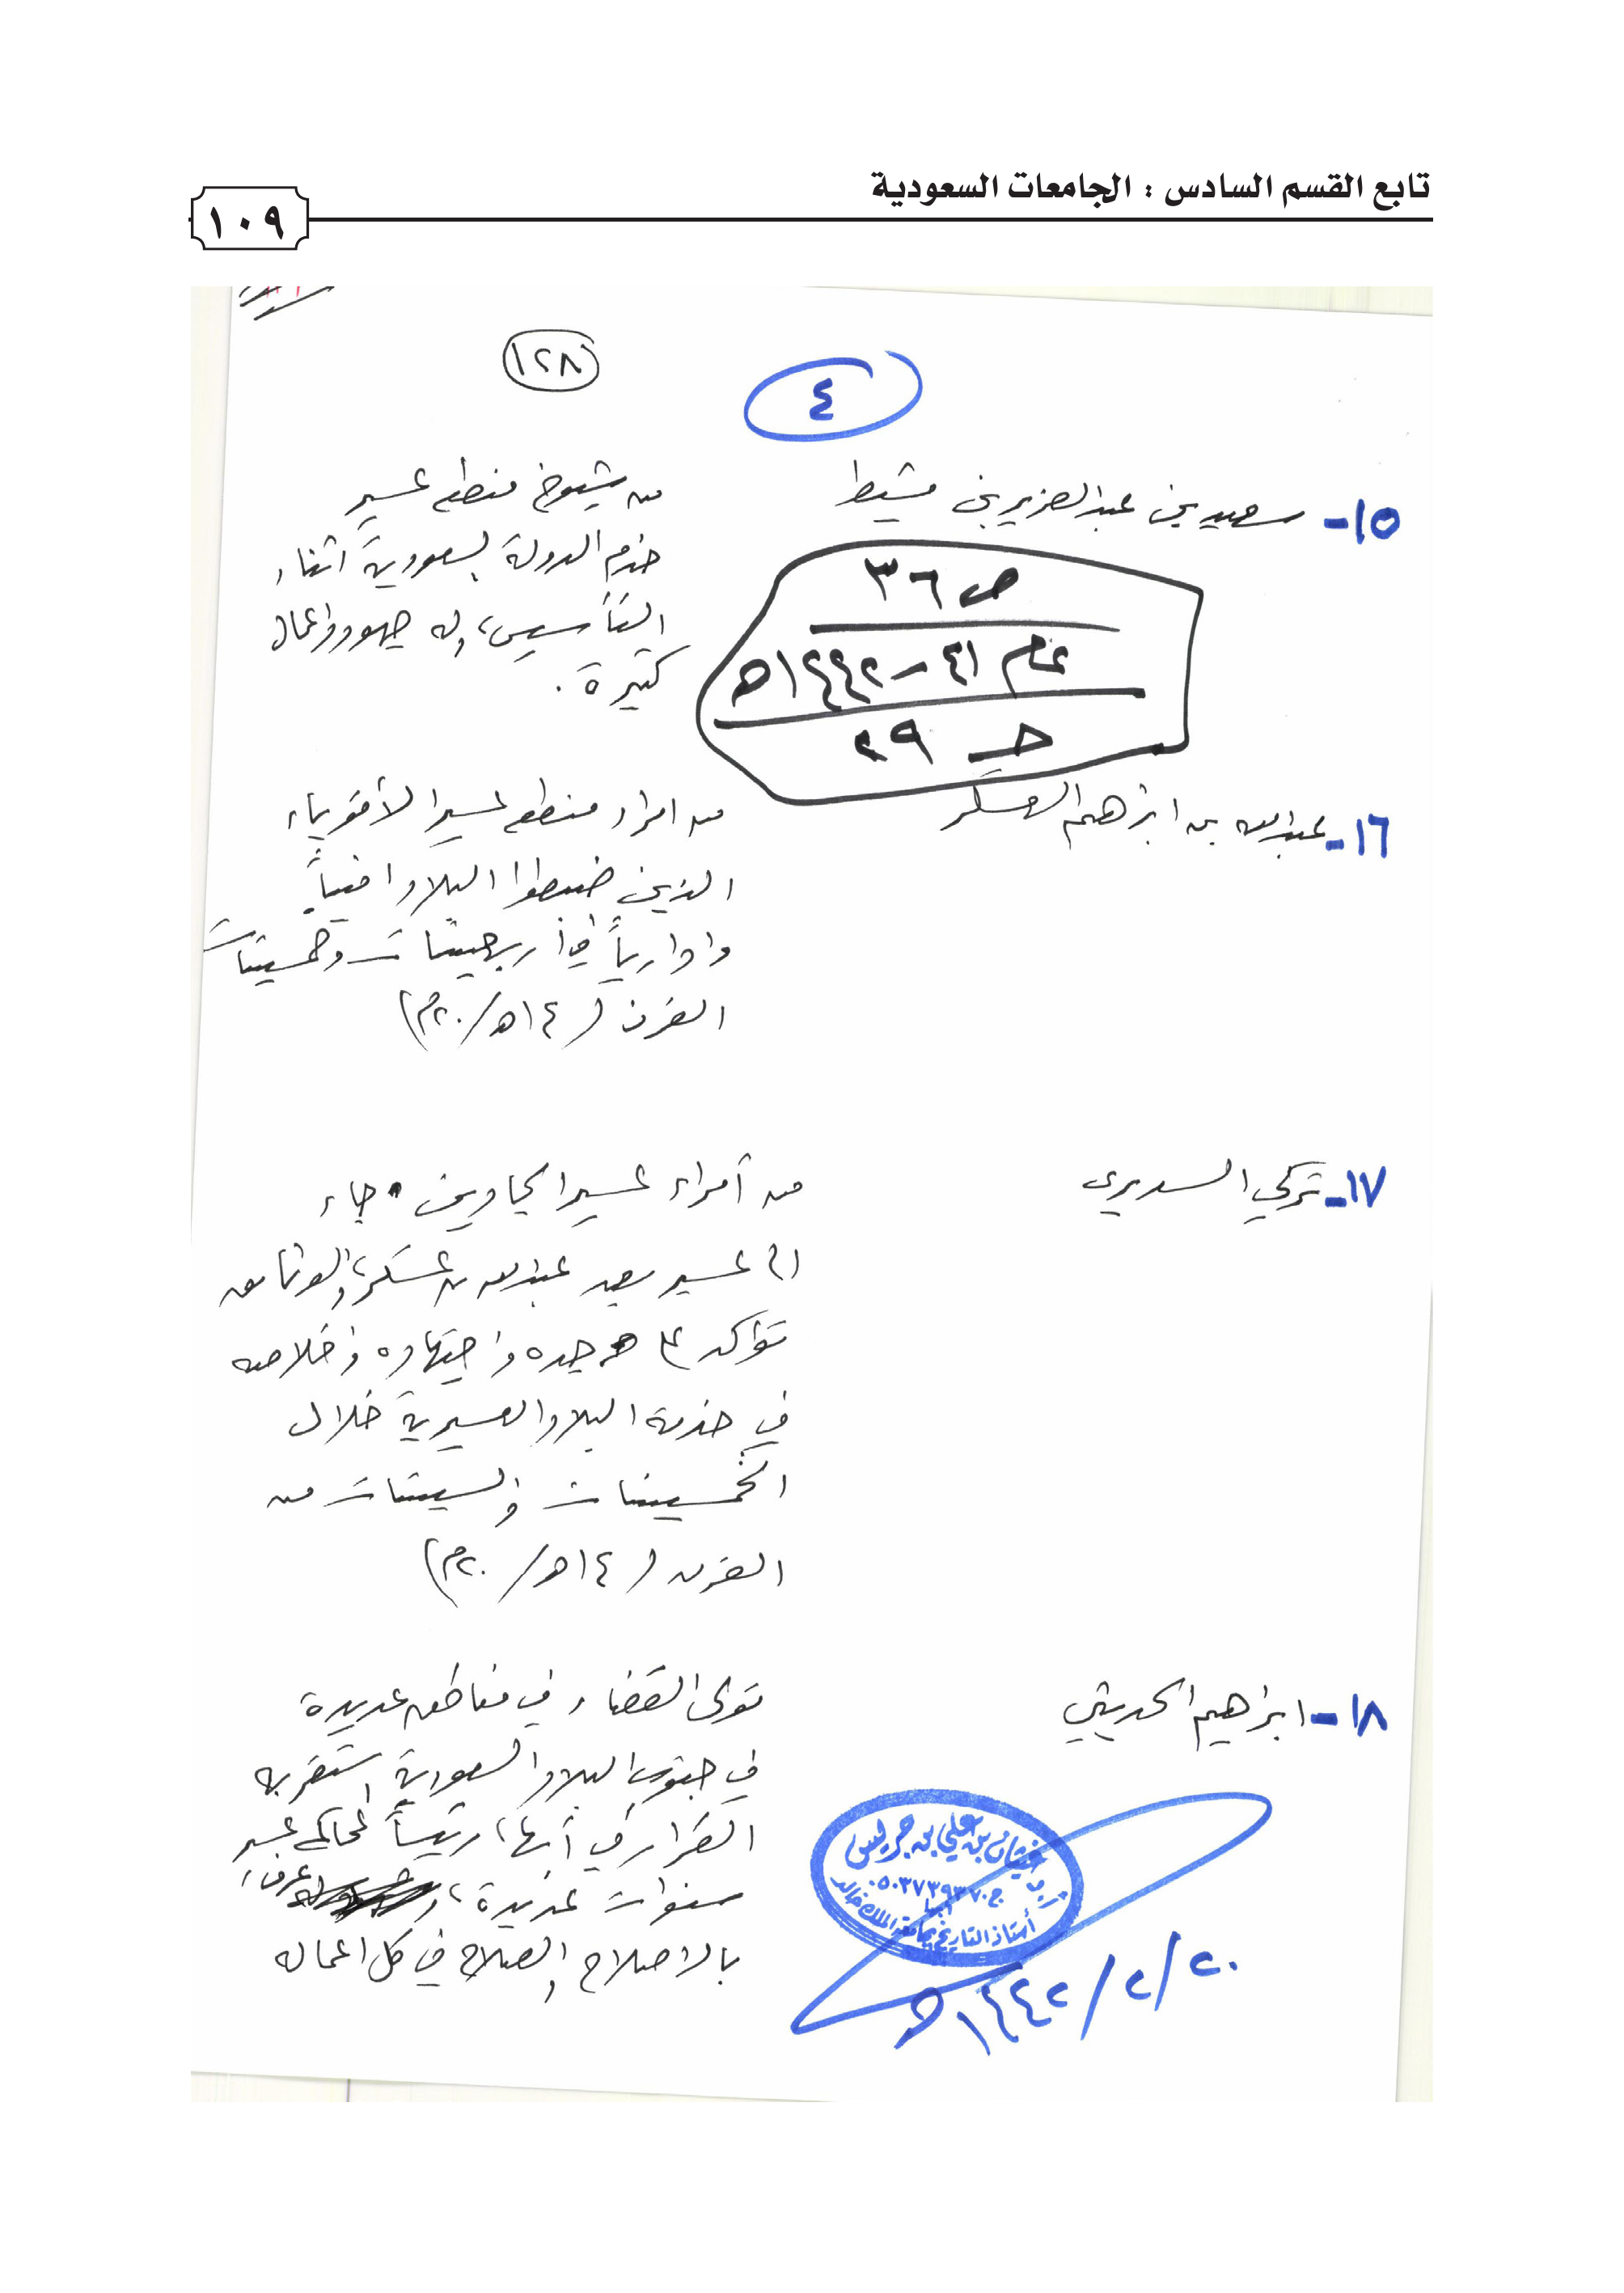 تابع القسم السادس : الجامعات السعودية
١٠٩
١٢٨
٤
١٥- سعيد بن عبدالعزيز بن مشيط
من شيوخ منطقة عسير
خدم الدولة السعودية اثناء
التأسيس، وله جهود واعمال
كثيرة.
ص ٣٦
عام ٤١ - ١٤٤٢ه
حـ ٢٩
١٦- عبدالله بن ابراهيم العسكر
من امراء منطقة عسير الأقوياء
الذين ضبطوا البلاد امنياً
وادارياً في أربعينات وخمسينات
القرن (١٤ه/٢٠م)
١٧- تركي السديري
من أمراء عسير الجادين. جاء
الى عسير بعد عبدالله بن عسكر، والوثائق
تؤكد على جده واجتهاده وإخلاصه
في خدمة البلاد العسيرية خلال
الخمسينات والستينات من
القرن (١٤ه/٢٠م)
١٨- ابراهيم الحديثي
تولى القضاء في مناطق عديدة
في جنوب البلاد السعودية استقر به
القرار في أبها، رئيساً لمحاكم عسير
سنوات عديدة، عرف
بالاصلاح والصلاح في كل اعماله
غيثان بن علي بن جريس
ج ٠٥٠٣٧٣٩٣٧٠
أبها
أستاذ التاريخ بجامعة الملك خالد
٢٠/٢/١٤٤٢ه